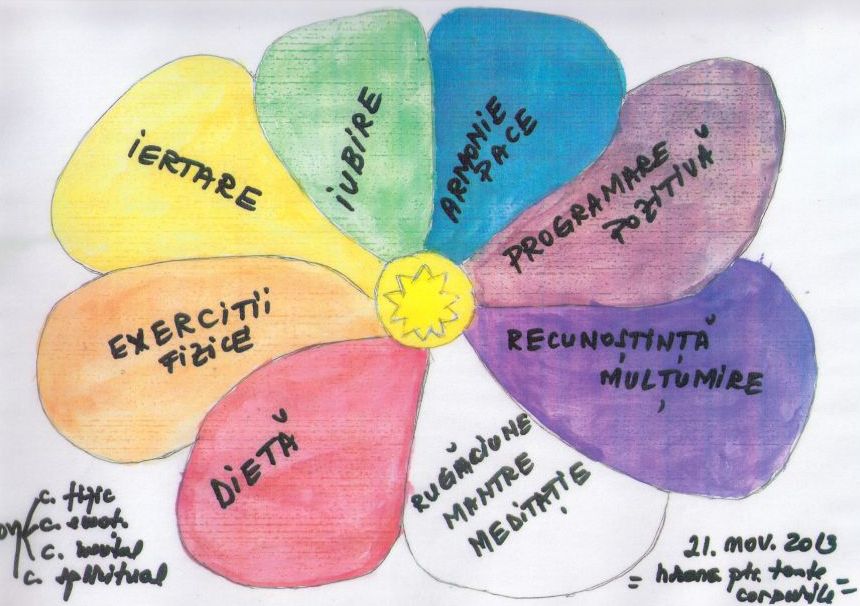 IERTARE
IUBIRE
ARMONIE
PACE
PROGRAMARE
POZITIVĂ
RECUNOȘTINȚĂ
MULȚUMIRE
RUGĂCIUNE
MANTRE
MEDITAȚIE
DIETĂ
EXERCITII
FIZICE
c. fizic
c. emoț.
c. mental
c. spiritual
21. nov. 2013
= hrana ptr. toate
corpurile =